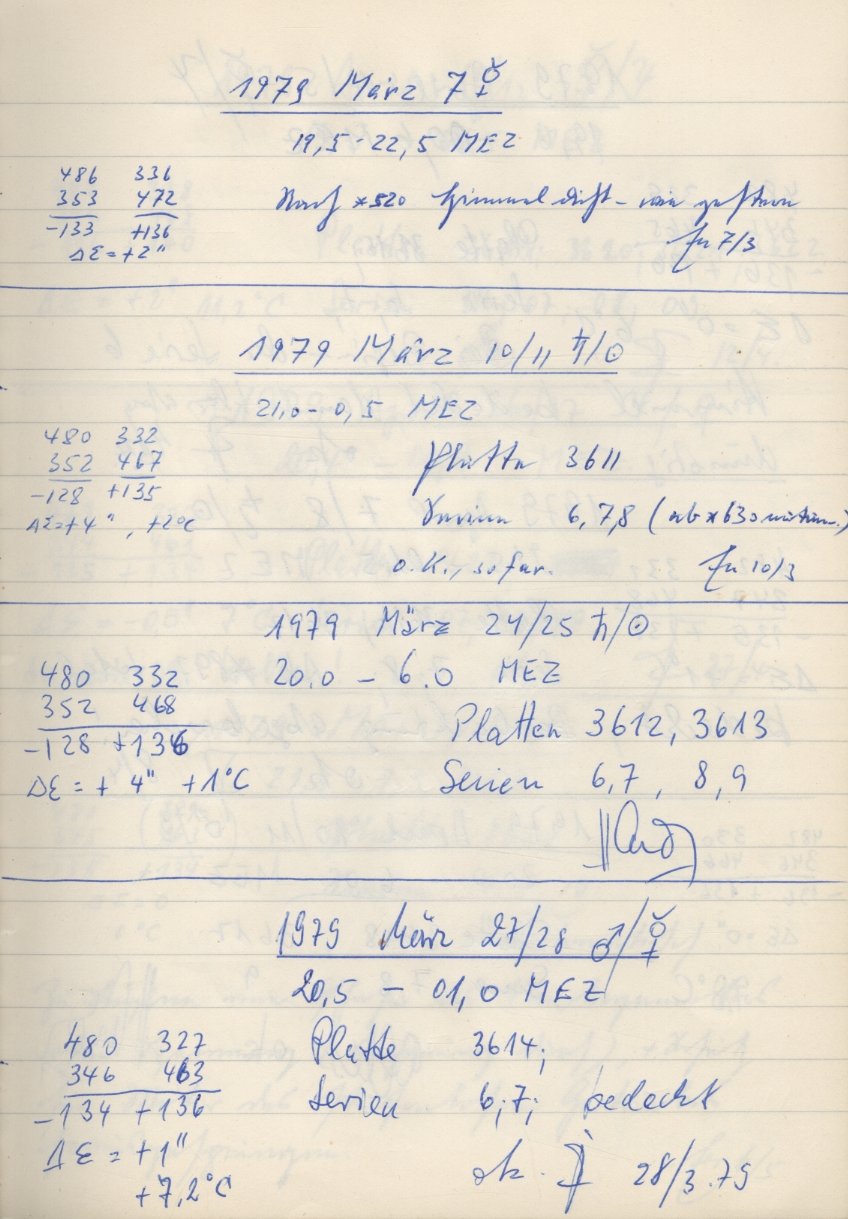 1979 März 7 ☿
19,5-22,5 MEZ
486 336
353 472
-133 +136
ΔΣ = +2"
Nach *520 Himmel dicht - wie gestern
7/3
1979 März 10/11 ♄/☉
21,0 - 0,5 MEZ
480 332
352 467
-128 +135
ΔΣ = +4", +2°C
Platte 3611
Serien 6,7,8 (ab *630
o.K., so far. 10/3
1979 März 24/25 ♄/☉
20.0 - 6.0 MEZ
480 332
352 468
-128 +136
Δε = + 4" +1°C
Platten 3612, 3613
Serien 6,7, 8,9
1979 März 27/28 ♂/☿
20,5 - 01,0 MEZ
480 327
346 463
-134 +136
Δε = +1"
+7,2°C
Platte 3614;
Serien 6,7; bedeckt
ok. 28/3.79